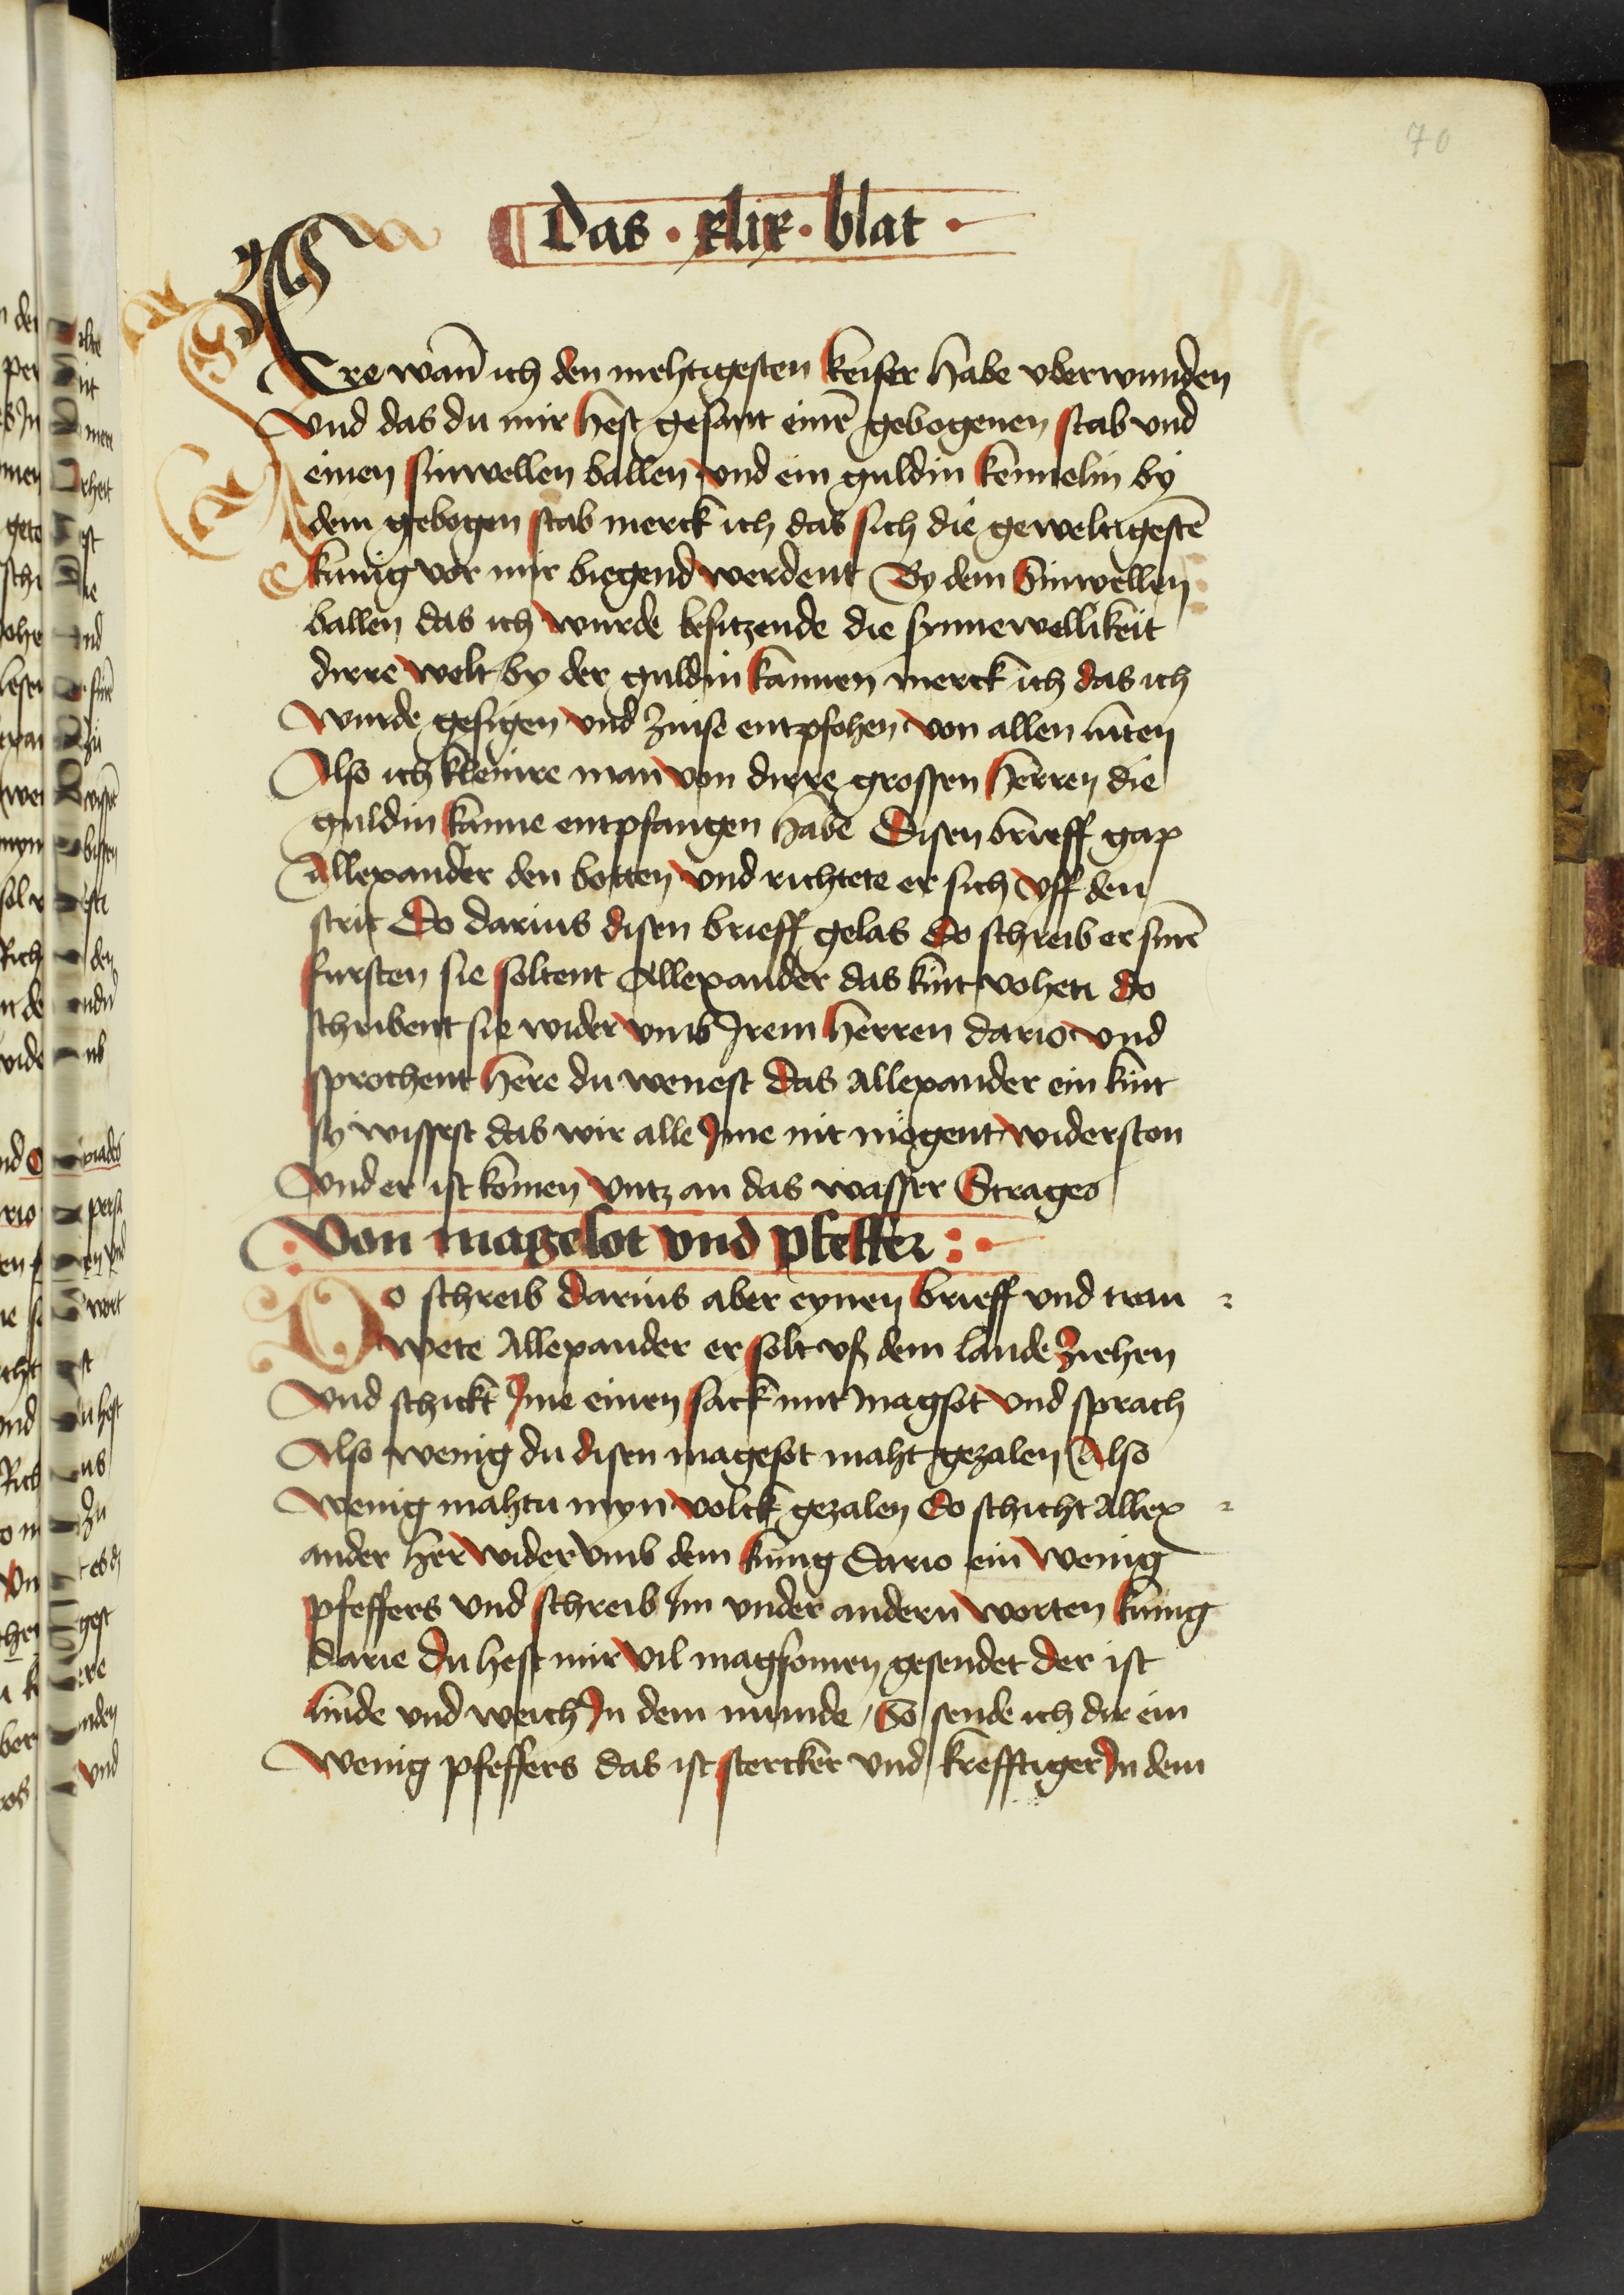 70
Das · xlix · blat ·
Ere wañ ich den mehtigesten keiser habe vberwunden
Vnd das du mir hest gesant einē gebogenen stab vnd
einen sinwellen ballen vnd ein guldin kennelin by
dem gebogen stab merck ich das sich die geweltigestē
kunig vor mir biegend werdent By dem Sinwellen
ballen das ich wurde besitzende die synnewellikeit
dirre welt by der guldin kannen merck ich das ich
Wurde gesigen vnd zinse entpfohen von allen luten
Also ich kleinre man von dirre grossen herren die
guldin kanne entpfangen habe Disen brieff gap
Allexander den botten vnd richtete er sich vff den
strit Do darius disen brieff gelas do schreib er sinē
fursten sie soltent Allexander das kint vohen do
schribent sie wider vmb Jrem herren dario vnd
sprochent here du wenest das Allexander ein kint
sy wissest das wir alle Jme nit mögent widerston
Vnd er ist komen vntz an das wasser Strages
Von magelot vnd pfeffer :
Do schreib darius aber eynen brieff vnd trau
wete Allexander er solt vß dem lande ziehen
Vnd schickt Jme einen sack mit magsot vnd sprach
Also wenig du disen magesot maht gezalen Also
wenig mahtu myn volck gezalen Do schicht Allex
ander her wider vmb dem kunig Dario ein wenig
pfeffers vnd schreib Jm vnder andern worten kunig
darie du hest mir vil magsomen gesendet der ist
linde vnd weich Jn dem munde / So sende ich dir ein
wenig pfeffers das ist stercker vnd krefftiger Jn dem